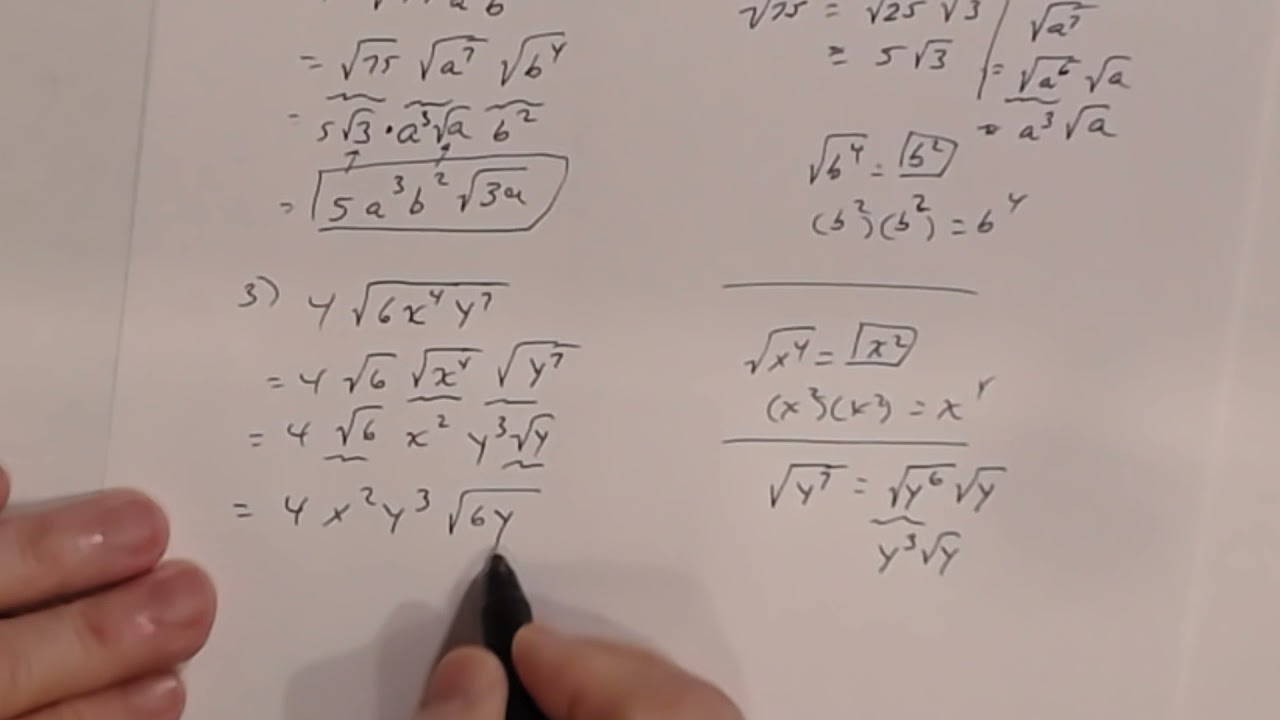 = √75 √a⁷ √b⁴
= 5√3 · a³√a b²
= 5a³b²√3a
3) 4 √6x⁴y⁷
= 4 √6 √x⁴ √y⁷
= 4 √6 x² y³√y
= 4 x² y³ √6y
√75 = √25 √3
= 5 √3
√a⁷
= √a⁶ √a
= a³ √a
√b⁴ = b²
(b²)(b²) = b⁴
√x⁴ = x²
(x²)(x²) = x⁴
√y⁷ = √y⁶ √y
y³√y